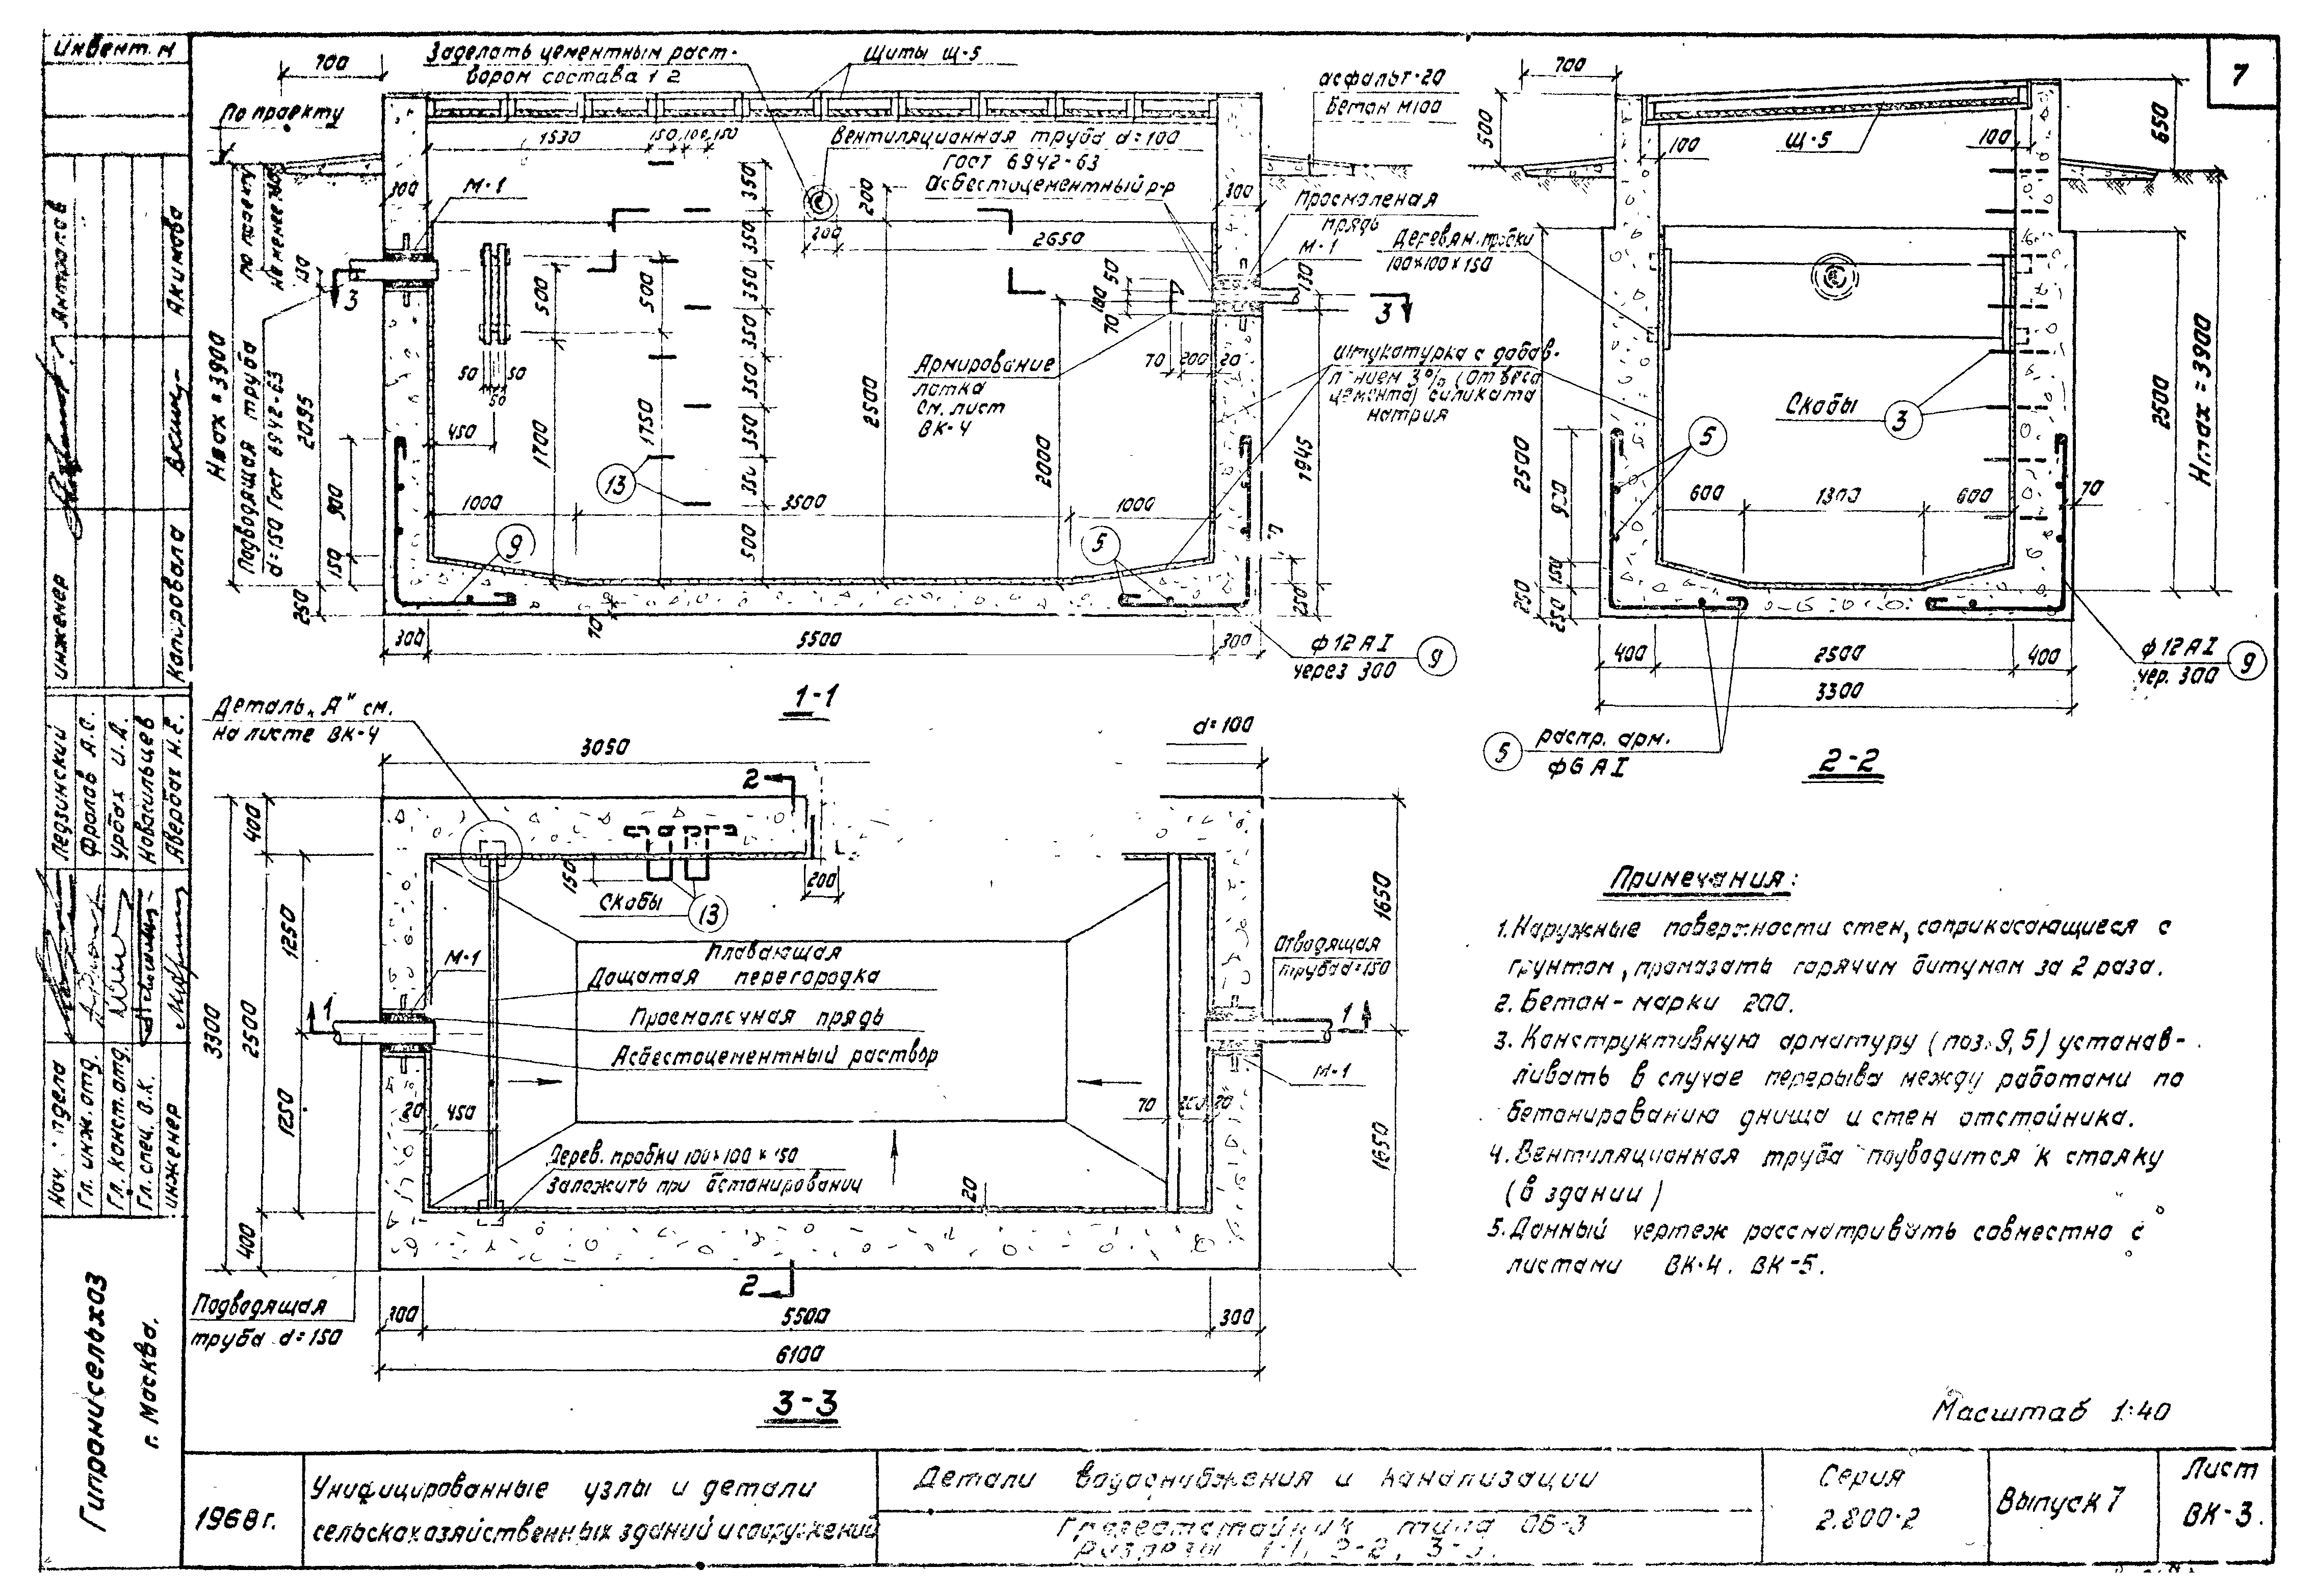 Инвент. н
7
700
Заделать цементным раст-
вором состава 1 2
Щиты Щ-5
асфальт-20
Бетон М100
700
500
650
По проекту
1530
150 100 150
Вентиляционная труба d=100
ГОСТ 6942-63
Асбестоцементный р-р
300
М-1
350
200
300
Просмоленая
прядь
М-1
100
Щ-5
100
по проекту
не менее 700
200
2650
Деревян. пробки
100×100×150
130
3
500
500
350
350
50
100
70
130
3
Нmax = 3900
Подводящая труба
d=150 Гост 6942-63
2095
50 50
50
450
1700
1750
350
350
350
350
500
2500
Армирование
лотка
см. лист
ВК-4
70 200 20
2000
1945
Штукатурка с добав-
лением 3% (от веса
цемента) силиката
натрия
Скобы
3
5
2500
Нmax = 3900
2500
900
150
250
1000
13
3500
1000
9
5
70
250
900
150
250
250
600
1300
600
70
300
5500
300
ф12АI
через 300
9
400
2500
400
3300
ф12АI
чер. 300
9
1-1
5
распр. арм.
ф6АI
2-2
Деталь „А" см.
на листе ВК-4
3050
d=100
2
400
1250
2500
3300
1250
400
150
Скобы
13
200
1650
1650
М-1
Плавающая
Дощатая перегородка
Просмоленная прядь
Асбестоцементный раствор
Отводящая
труба d=150
1
1
М-1
20
450
70 200 20
Дерев. пробки 100×100×150
заложить при бетонировании
20
2
Подводящая
труба d=150
300
5500
300
6100
3-3
Примечания:
1. Наружные поверхности стен, соприкасающиеся с
грунтом, промазать горячим битумом за 2 раза.
2. Бетон-марки 200.
3. Конструктивную арматуру (поз. 9, 5) устанав-
ливать в случае перерыва между работами по
бетонированию днища и стен отстойника.
4. Вентиляционная труба подводится к стояку
(в здании)
5. Данный чертеж рассматривать совместно с
листами ВК-4. ВК-5.
Масштаб 1:40
инженер
Антропов
Копировала
Акимова
Нач. отдела
Гл. инж. отд.
Гл. конст. отд.
Гл. спец. В.К.
инженер
Ледзинский
Фролов А.С.
Урбах И.А.
Новасильцев
Авербах Н.Е.
Гипронисельхоз
г. Москва.
1968г.
Унифицированные узлы и детали
сельскохозяйственных зданий и сооружений
Детали водоснабжения и канализации
Грязеотстойник типа ОБ-3
Разрезы 1-1, 2-2, 3-3.
Серия
2.800-2
Выпуск 7
Лист
ВК-3.